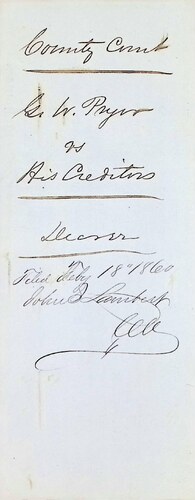 County Court
G. W. Pryor
vs
His Creditors
Decree
Filed Feby 18" 1860
John Lambert
Clk